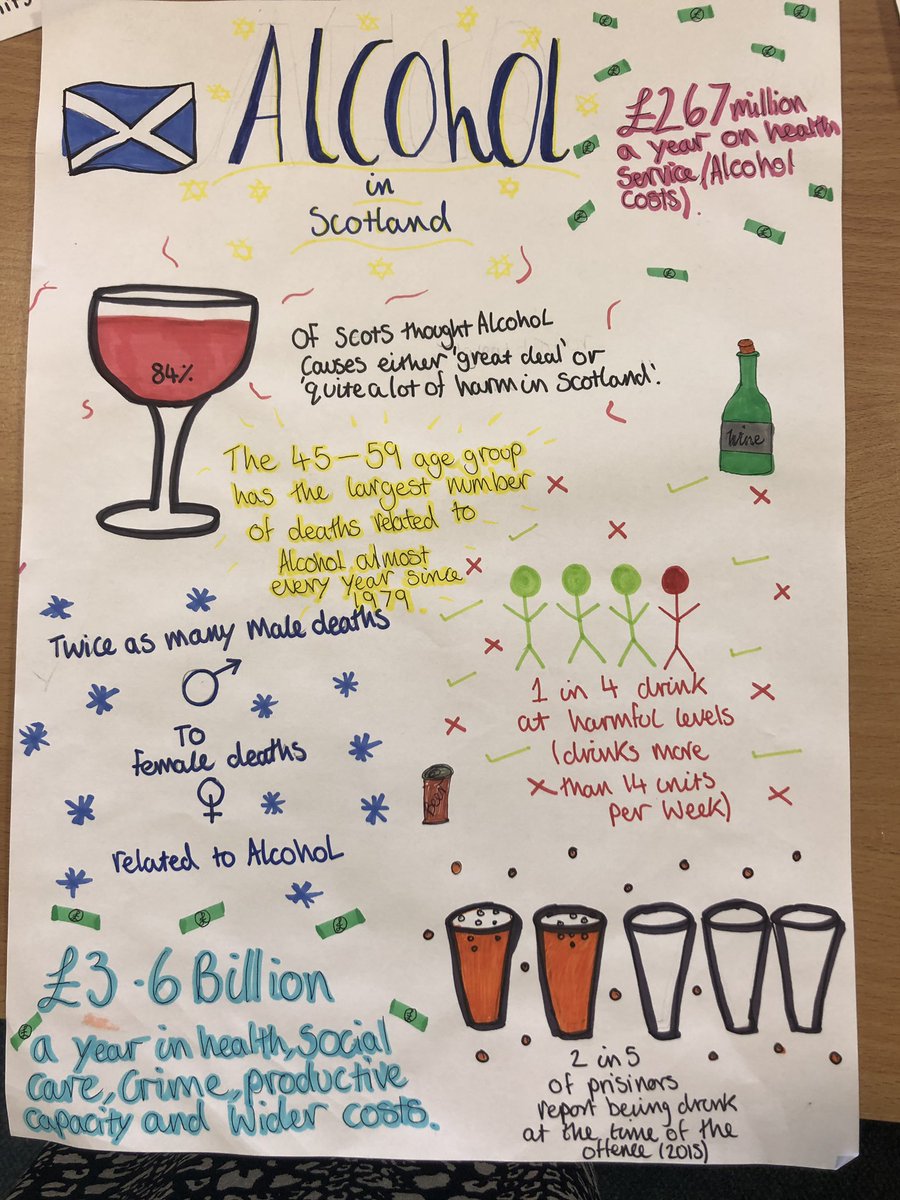 Alcohol
in
Scotland
£267 million
a year on health
service/Alcohol
costs).
84%
Of Scots thought Alcohol
causes either 'great deal' or
'quite a lot of harm in Scotland'.
Wine
The 45-59 age group
has the largest number
of deaths related to
Alcohol, almost
every year since
1979.
Twice as many Male deaths
To
female deaths
related to Alcohol
1 in 4 drink
at harmful levels
(drinks more
than 14 units
per week)
Beer
£3.6 Billion
a year in health, social
care, crime, productive
capacity and wider costs.
2 in 5
of prisiners
report being drunk
at the time of the
offence (2015)